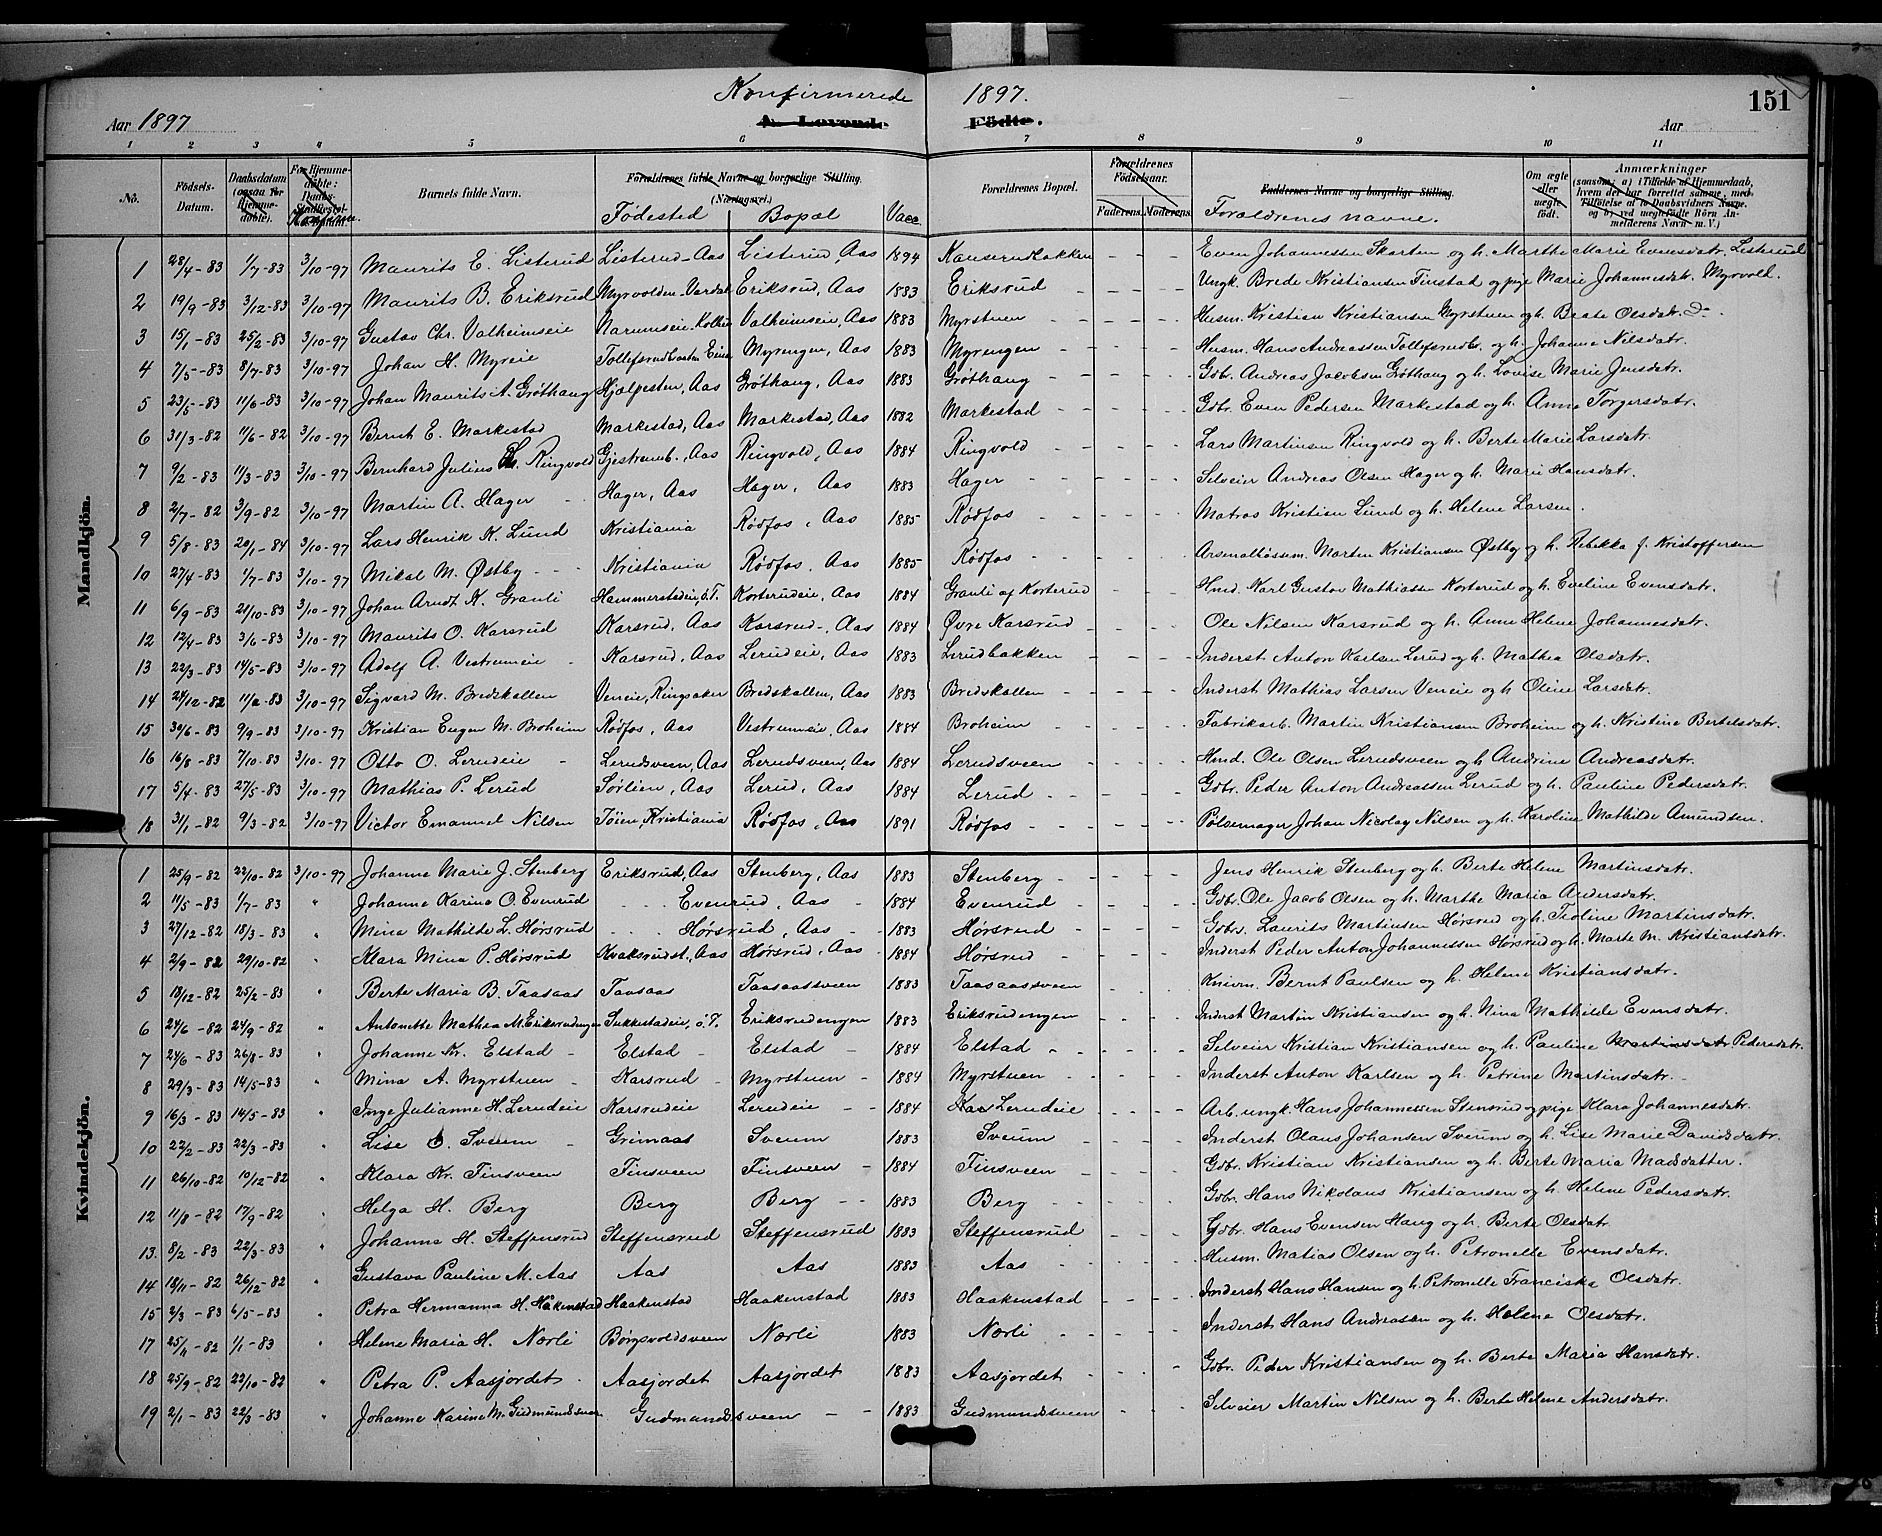 Konfirmerede 1897.
151
Aar 1897
A. Levende Fødte.
Aar
1 2 3 4 5 6 7 8 9 10 11
No.
Födsels-Datum.
Daabsdatum (ogsaa for Hjemme-døbte).
For Hjemme-døbte: Daabs-
Barnets fulde Navn.
Forældrenes fulde Navne og borgerlige Stilling. (Næringsvei.)
Födested Bopæl Vacc.
Forældrenes Bopæl.
Forældrenes Födselsaar.
Faderens. Moderens.
Faddernes Navne og borgerlige Stilling.
Forældrenes navne.
Om ægte eller uægte födt.
Anmærkninger (saasom: a) i Tilfælde af Hjemmedaab, hvem der har forrettet samme, med Tilföielse af to Daabsvidners Navne, og b) ved uegtefödte Börn Anmelderens Navn m. V.)
Mandkjön.
1 28/4-83 1/7-83 3/10-97 Maurits E. Listerud Listerud-Aas Listerud, Aas 1894 Kanserudbakken Even Johannessen Skarten og h. Marthe Marie Evensdatr. Listerud
2 19/9-83 3/12-83 3/10-97 Maurits B. Eriksrud Myrvolden-Vardal Eriksrud, Aas 1883 Eriksrud Ungk. Brede Kristiansen Finstad og pige Marie Johannesdatr. Myrvold.
3 15/1-83 25/2-83 3/10-97 Gustav Chr. Valheimseie Narumseie-Kolbu Valheimseie, Aas 1883 Myrstuen Husm. Kristian Kristiansen Myrstuen og h. Beate Olsdatr. do
4 7/5-83 8/7-83 3/10-97 Johan H. Myreie Tollefsrudbraaten Eina Myrengen, Aas 1883 Myrengen Husm. Hans Andreassen Tollefsrudbr. og h. Johanne Nilsdatr.
5 23/5-83 11/6-83 3/10-97 Johan Maurits A. Grøthaug Hjælpesten, Aas Grøthaug, Aas 1883 Grøthaug Gdbr. Andreas Jacobsen Grøthaug og h. Lovise Marie Jensdatr.
6 31/3-82 11/6-82 3/10-97 Bernt E. Markestad Markestad, Aas Markestad, Aas 1882 Markestad Gdbr. Even Pedersen Markestad og h. Anne Torgersdatr.
7 9/2-83 11/3-83 3/10-97 Bernhard Julius L. Ringvold Gjestrumb., Aas Ringvold, Aas 1884 Ringvold Lars Martinsen Ringvold og h. Berte Marie Larsdatr.
8 2/7-82 3/9-82 3/10-97 Martin A. Hager Hager, Aas Hager, Aas 1883 Hager Selveier Andreas Olsen Hager og h. Marie Hansdatr.
9 5/8-83 20/1-84 3/10-97 Lars Henrik K. Lund Kristiania Rødfos, Aas 1885 Rødfos Matros Kristian Lund og h. Helene Larsen.
10 27/4-83 1/7-83 3/10-97 Mikal M. Østby Kristiania Rødfos, Aas 1885 Rødfos Arsenalløssm. Martin Kristiansen Østby og h. Rebikka f. Kristoffersen
11 6/9-83 21/10-83 3/10-97 Johan Arndt K. Granli Hammerstadeie, ö.T. Korterudeie, Aas 1884 Granli af Korterud Hmd. Karl Gustav Mathiassen Korterud og h. Eveline Evensdatr.
12 12/4-83 3/6-83 3/10-97 Maurits O. Karsrud Karsrud, Aas Karsrud, Aas 1884 Øvre Karsrud Ole Nilsen Karsrud og h. Anne Helene Johannesdatr.
13 22/3-83 14/5-83 3/10-97 Adolf A. Vestrumeie Karsrud, Aas Lerudeie, Aas 1883 Lerudbakken Inderst Anton Karlsen Lerud og h. Mathea Olsdatr.
14 24/12-82 11/2-83 3/10-97 Sigvard M. Bredskallen Veneie, Ringsaker Bredskallen, Aas 1883 Bredskallen Inderst Mathias Larsen Veneie og h. Oline Larsdatr.
15 30/6-83 9/9-83 3/10-97 Kristian Eugen M. Broheim Rødfos, Aas Vestrumeie, Aas 1884 Broheim Fabrikarb. Martin Kristiansen Broheim og h. Kristine Bertelsdatr.
16 16/8-83 7/10-83 3/10-97 Otto O. Lerudeie Lerudsveen, Aas Lerudsveen, Aas 1884 Lerudsveen Hmd. Ole Olsen Lerudsveen og h. Andrine Andreasdatr.
17 5/4-83 27/5-83 3/10-97 Mathias P. Lerud Sørlien, Aas Lerud, Aas 1884 Lerud Gdbr. Peder Anton Andreassen Lerud og h. Pauline Pedersdatr.
18 3/1-82 9/3-82 3/10-97 Victor Emanuel Nilsen Töien, Kristiania Rødfos, Aas 1891 Rødfos Pølsemager Johan Nicolay Nilsen og h. Karoline Mathilde Amundsen.
Kvindekjön.
1 25/9-82 22/10-82 3/10-97 Johanne Marie J. Stenberg Eriksrud, Aas Stenberg, Aas 1883 Stenberg Jens Henrik Stenberg og h. Berte Helene Martinsdatr.
2 11/5-83 1/7-83 " Johanne Karine O. Evenrud Evenrud, Aas 1884 Evenrud Gdbr. Ole Jacob Olsen og h. Marthe Maria Andersdatr.
3 27/12-82 18/3-83 " Mina Mathilde L. Hørsrud Hørsrud, Aas 1883 Hørsrud Gdbr. Laurits Martinsen Hørsrud og h. Teoline Martinsdatr.
4 2/9-82 29/10-82 " Klara Mina P. Hørsrud Kvaksrudst., Aas Hørsrud, Aas 1884 Hørsrud Inderst Peder Anton Johannessen Hørsrud og h. Marte M. Kristiansdatr.
5 18/12-82 25/2-83 " Berte Maria B. Taasaas Taasaas Taasaassveen 1883 Taasaassveen Knivm. Bernt Paulsen og h. Helene Kristiansdatr.
6 24/6-82 24/9-82 " Antonette Mathea M. Eriksrudengen Sukkestadeie, ö.T. Eriksrudengen 1883 Eriksrudengen Inderst Martin Kristiansen og h. Nina Mathilde Evensdatr.
7 24/6-83 26/8-83 " Johanne Kr. Elstad Elstad Elstad 1884 Elstad Selveier Kristian Kristiansen og h. Pauline Martinsdatr. Pedersdatr.
8 29/3-83 14/5-83 " Mina A. Myrstuen Karsrud Myrstuen 1884 Myrstuen Inderst Anton Karlsen og h. Petrine Martinsdatr.
9 16/3-83 14/5-83 " Inga Julianne H. Lerudeie Karsrudeie Lerudeie 1884 Kar Lerudeie Arb. ungk. Hans Johannessen Stensrud og pige Klara Johannesdatr.
10 22/2-83 22/3-83 " Lise O. Sveum Grimaas Sveum 1883 Sveum Inderst Olaus Johansen Sveum og h. Lise Marie Davidsdatr.
11 26/10-82 10/12-82 " Klara Kr. Finsveen Finsveen Finsveen 1884 Finsveen Gdbr. Kristian Kristiansen og h. Berte Maria Madsdatter.
12 11/8-82 17/9-82 " Helga H. Berg Berg Berg 1883 Berg Gdbr. Hans Nikolaus Kristiansen og h. Helene Pedersdatr.
13. 8/2-83 22/3-83 " Johanne H. Steffensrud Steffensrud Steffensrud 1883 Steffensrud Gdbr. Hans Evensen Haug og h. Berte Olsdatr.
14 18/11-82 26/12-82 " Gustava Pauline M. Aas Aas Aas 1883 Aas Husm. Matias Olsen og h. Petronelle Evensdatr.
15 2/3-83 6/5-83 " Petra Hermanna H. Haakenstad Haakenstad Haakenstad 1883 Haakenstad Inderst Hans Hansen og h. Petronelle Franciska Olsdatr.
17 25/11-82 1/1-83 " Helene Maria H. Nørli Børgsvoldsveen Nørli 1883 Nørli Inderst Hans Andreassen og h. Helene Olsdatr.
18 25/9-82 22/10-82 " Petra P. Aasjordet Aasjordet Aasjordet 1883 Aasjordet Gdbr. Peder Kristiansen og h. Berte Maria Hansdatr.
19 2/1-83 22/3-83 " Johanne Karine M. Gudmundsveen Gudmundsveen 1883 Gudmundsveen Selveier Martin Nilsen og h. Berte Helene Andersdatr.